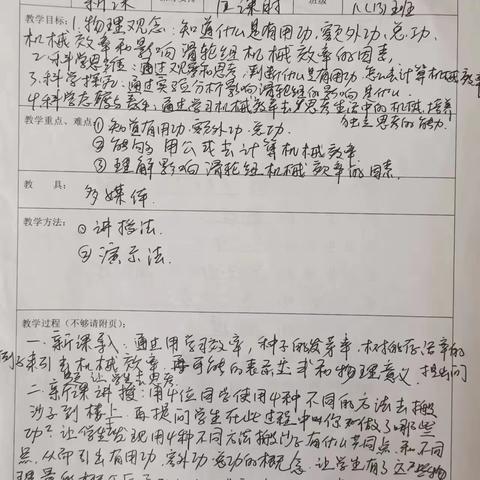 新课
课时
班级
八(13)班
教学目标: 1.物理观念:知道什么是有用功,额外功,总功,
机械效率和影响滑轮组机械效率的因素.
2.科学思维:通过观察和思考,判断什么是有用功.怎么去计算机械效率
3.科学探究:通过实验分析影响滑轮组的影响是什么.
4.科学态度与责任:通过学习机械效率去思考生活中的机械.培养
独立思考的能力.
教学重点、难点: ①知道有用功.额外功.总功.
②能够用公式去计算机械效率.
③理解影响滑轮组机械效率的因素.
教 具:
多媒体.
教学方法:
①讲授法.
②演示法.
教学过程(不够请附页):
一.新课导入:通过用学习效率,种子的发芽率.树木的存活率的
来引出机械效率.再写出的表示公式和物理意义.提出问
二.新课讲授:用4位同学使用4种不同的方法去搬
沙子到楼上.再提问学生在此过程中叫你们做了哪些
功?让学生发现用4种不同方法搬沙子有什么共同点和不同
点.从而引出有用功.额外功.总功的概念.让学生有了这